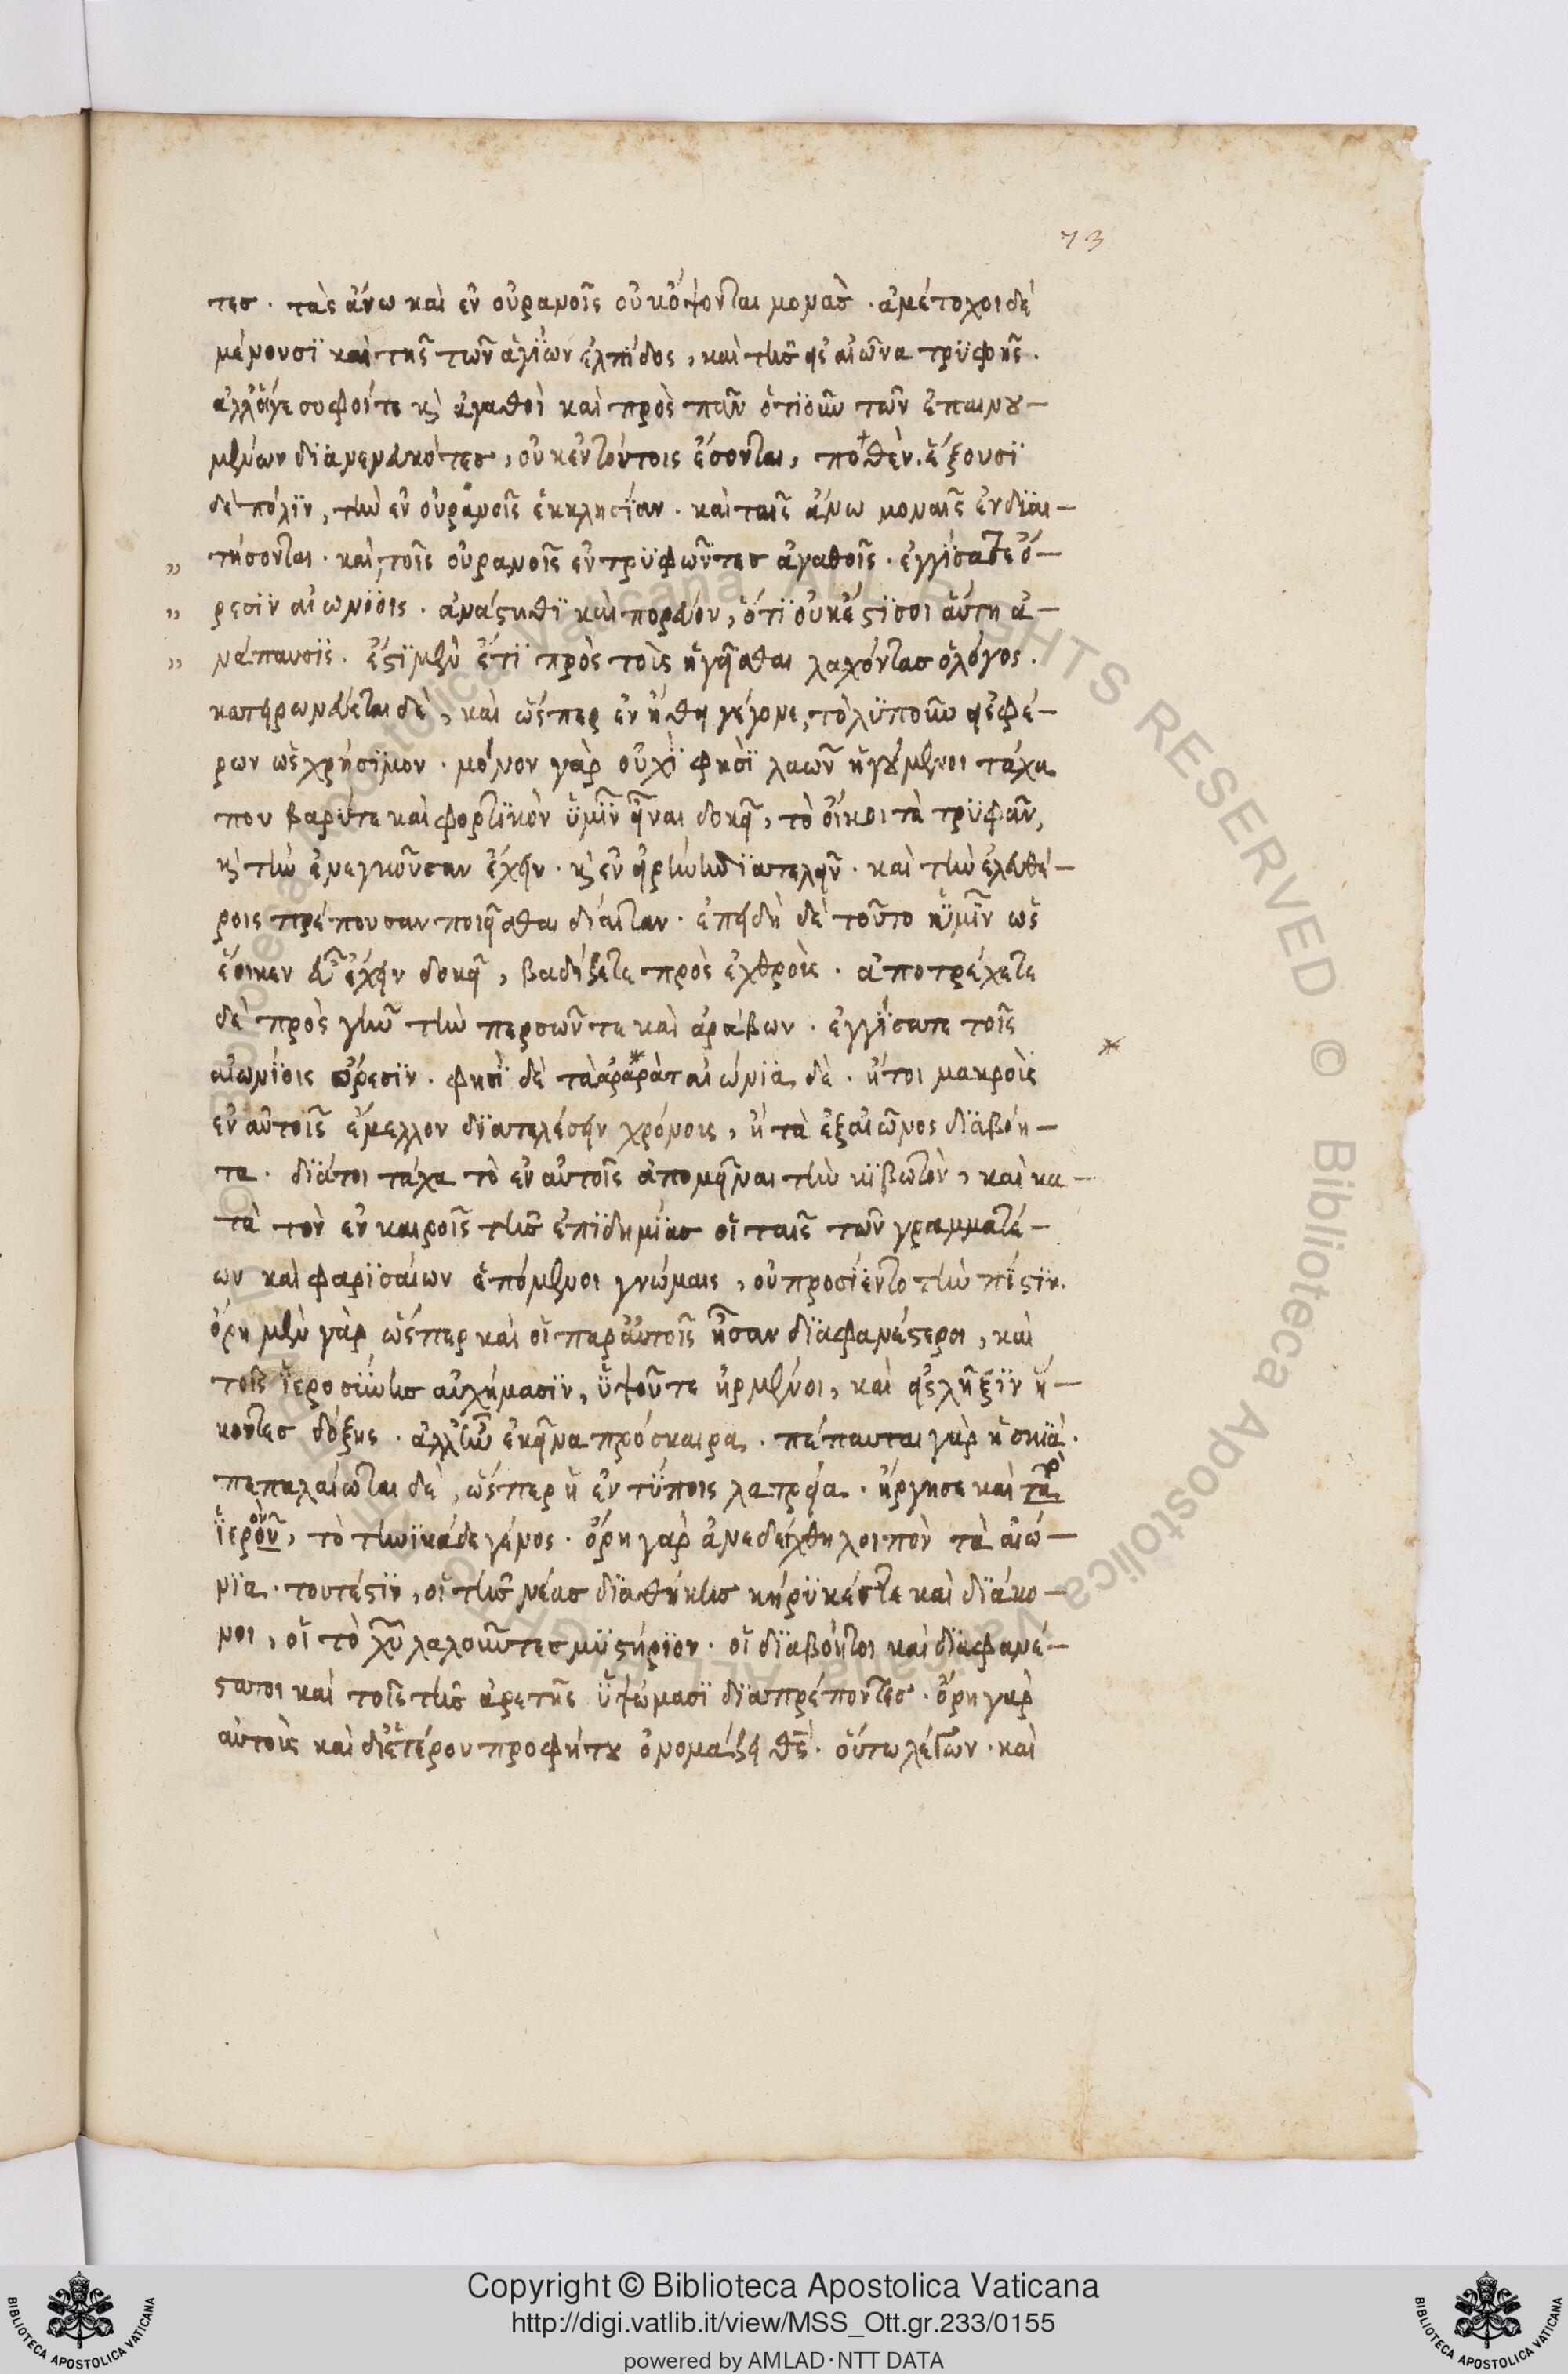 73
τες· τὰς ἄνω καὶ ἐν οὐρανοῖς οὐκ ὄψονται μονάς· ἀμέτοχοι δὲ
μένουσϊ καὶ τῆς τῶν ἁγίων ἐλπίδος, καὶ τῆς εἰς αἰῶνα τρϋφῆς.
ἀλλ' οἵγε σοφοί τε κ̀ ἀγαθοὶ καὶ πρὸς πᾶν ὁτϊοῦν τῶν ἐπαινȣ–
μένων δϊανενευκότες, οὐκ ἐν τούτοις ἔσονται, πόθεν. ἕξουσϊ
δὲ πόλϊν, τὴν ἐν οὐρανοῖς ἐκκλησίαν. καὶ ταῖς ἄνω μοναῖς ἐνδϊαι–
„ τήσονται. καὶ τοῖς οὐρανοῖς ἐντρϋφῶντες ἀγαθοῖς. ἐγγίσατε ὄ–
„ ρεσϊν αἰωνίοις. ἀνάστηθϊ καὶ πορεύου, ὅτϊ οὐκ ἔστϊ σοι αὕτη ἀ–
„ νάπαυσϊς. ἔστϊ μὲν ἔτϊ πρὸς τοὺς ἡγεῖσθαι λαχόντας ὁ λόγος.
κατειρωνεύεται δὲ, καὶ ὥσπερ ἐν ἤθει γέγονε, τὸ λϋποῦν εἰσφέ–
ρων ὡς χρήσϊμον. μόνον γὰρ οὐχϊ φησὶ λαῶν ἡγȣ́μενοι τάχα
που βαρύ τε καὶ φορτϊκὸν ὑμῖν εἶναι δοκεῖ, τὸ οἴκοι τὰ τρϋφᾶν,
κ̀ τὴν ἐνεγκοῦσαν ἔχειν. κ̀ ἐν εἰρήνῃ δϊατελεῖν. καὶ τὴν ἐλευθέ–
ροις πρέπουσαν ποιεῖσθαι δίαιταν. ἐπειδὴ δὲ τοῦτο ἡμῖν ὡς
ἔοικεν εὖ ἔχειν δοκεῖ, βαδίζετε πρὸς ἐχθροὺς. ἀποτρέχετε
δὲ πρὸς γῆν τὴν περσῶν τε καὶ ἀράβων. ἐγγΐσατε τοῖς
αἰωνίοις ὄρεσϊν. φησὶ δὲ τὰ ἀραρὰτ αἰώνϊα δὲ. ἤτοι μακροὺς
ἐν αὐτοῖς ἔμελλον δϊατελέσειν χρόνους, ἢ τὰ ἐξ αἰῶνος δϊαβόη–
τα. δϊάτοι τάχα τὸ ἐν αὐτοῖς ἀπομεῖναι τὴν κϊβωτὸν, καὶ κα–
τὰ τὸν ἐν καιροῖς τῆς ἐπϊδημίας οἱ ταῖς τῶν γραμματέ–
ων καὶ φαρϊσαίων ἑπόμενοι γνώμαις, οὐ προσίεντο τὴν πίστϊν.
ὄρη μὲν γὰρ ὥσπερ καὶ οἱ παρ' αὐτοῖς ἦσαν δϊαφανέστεροι, καὶ
τοῖς ἱεροσύνης αὐχήμασϊν, ὑψοῦ τε ἠρμένοι, καὶ εἰς λῆξϊν ἥ–
κοντες δόξης. ἀλλ' ἦν ἐκεῖνα πρόσκαιρα. πέπαυται γὰρ ἡ σκϊὰ.
πεπαλαίωται δὲ, ὥσπερ ἡ ἐν τΰποις λατρεία. ἤργησε καὶ τὰρ
ἱερὸν, τὸ τηνικάδε γένος. ὄρη γὰρ ἀνεδείχθη λοιπὸν τὰ αἰώ–
νϊα. τουτέστϊν, οἱ τῆς νέας δϊαθήκης κήρϋκές τε καὶ δϊάκο–
νοι, οἱ τὸ χ̅υ̅ λαλοῦντες μϋστήρϊον. οἱ δϊαβόητοι καὶ δϊαφανέ–
στατοι καὶ τοῖς τῆς ἀρετῆς ὑψώμασϊ δϊαπρέποντες. ὄρη γὰρ
αὐτοὺς καὶ δι' ἑτέρου προφήτȣ ὀνομάζει θ̅ς̅. οὕτω λέγων. καὶ
Copyright © Biblioteca Apostolica Vaticana
http://digi.vatlib.it/view/MSS_Ott.gr.233/0155
powered by AMLAD·NTT DATA